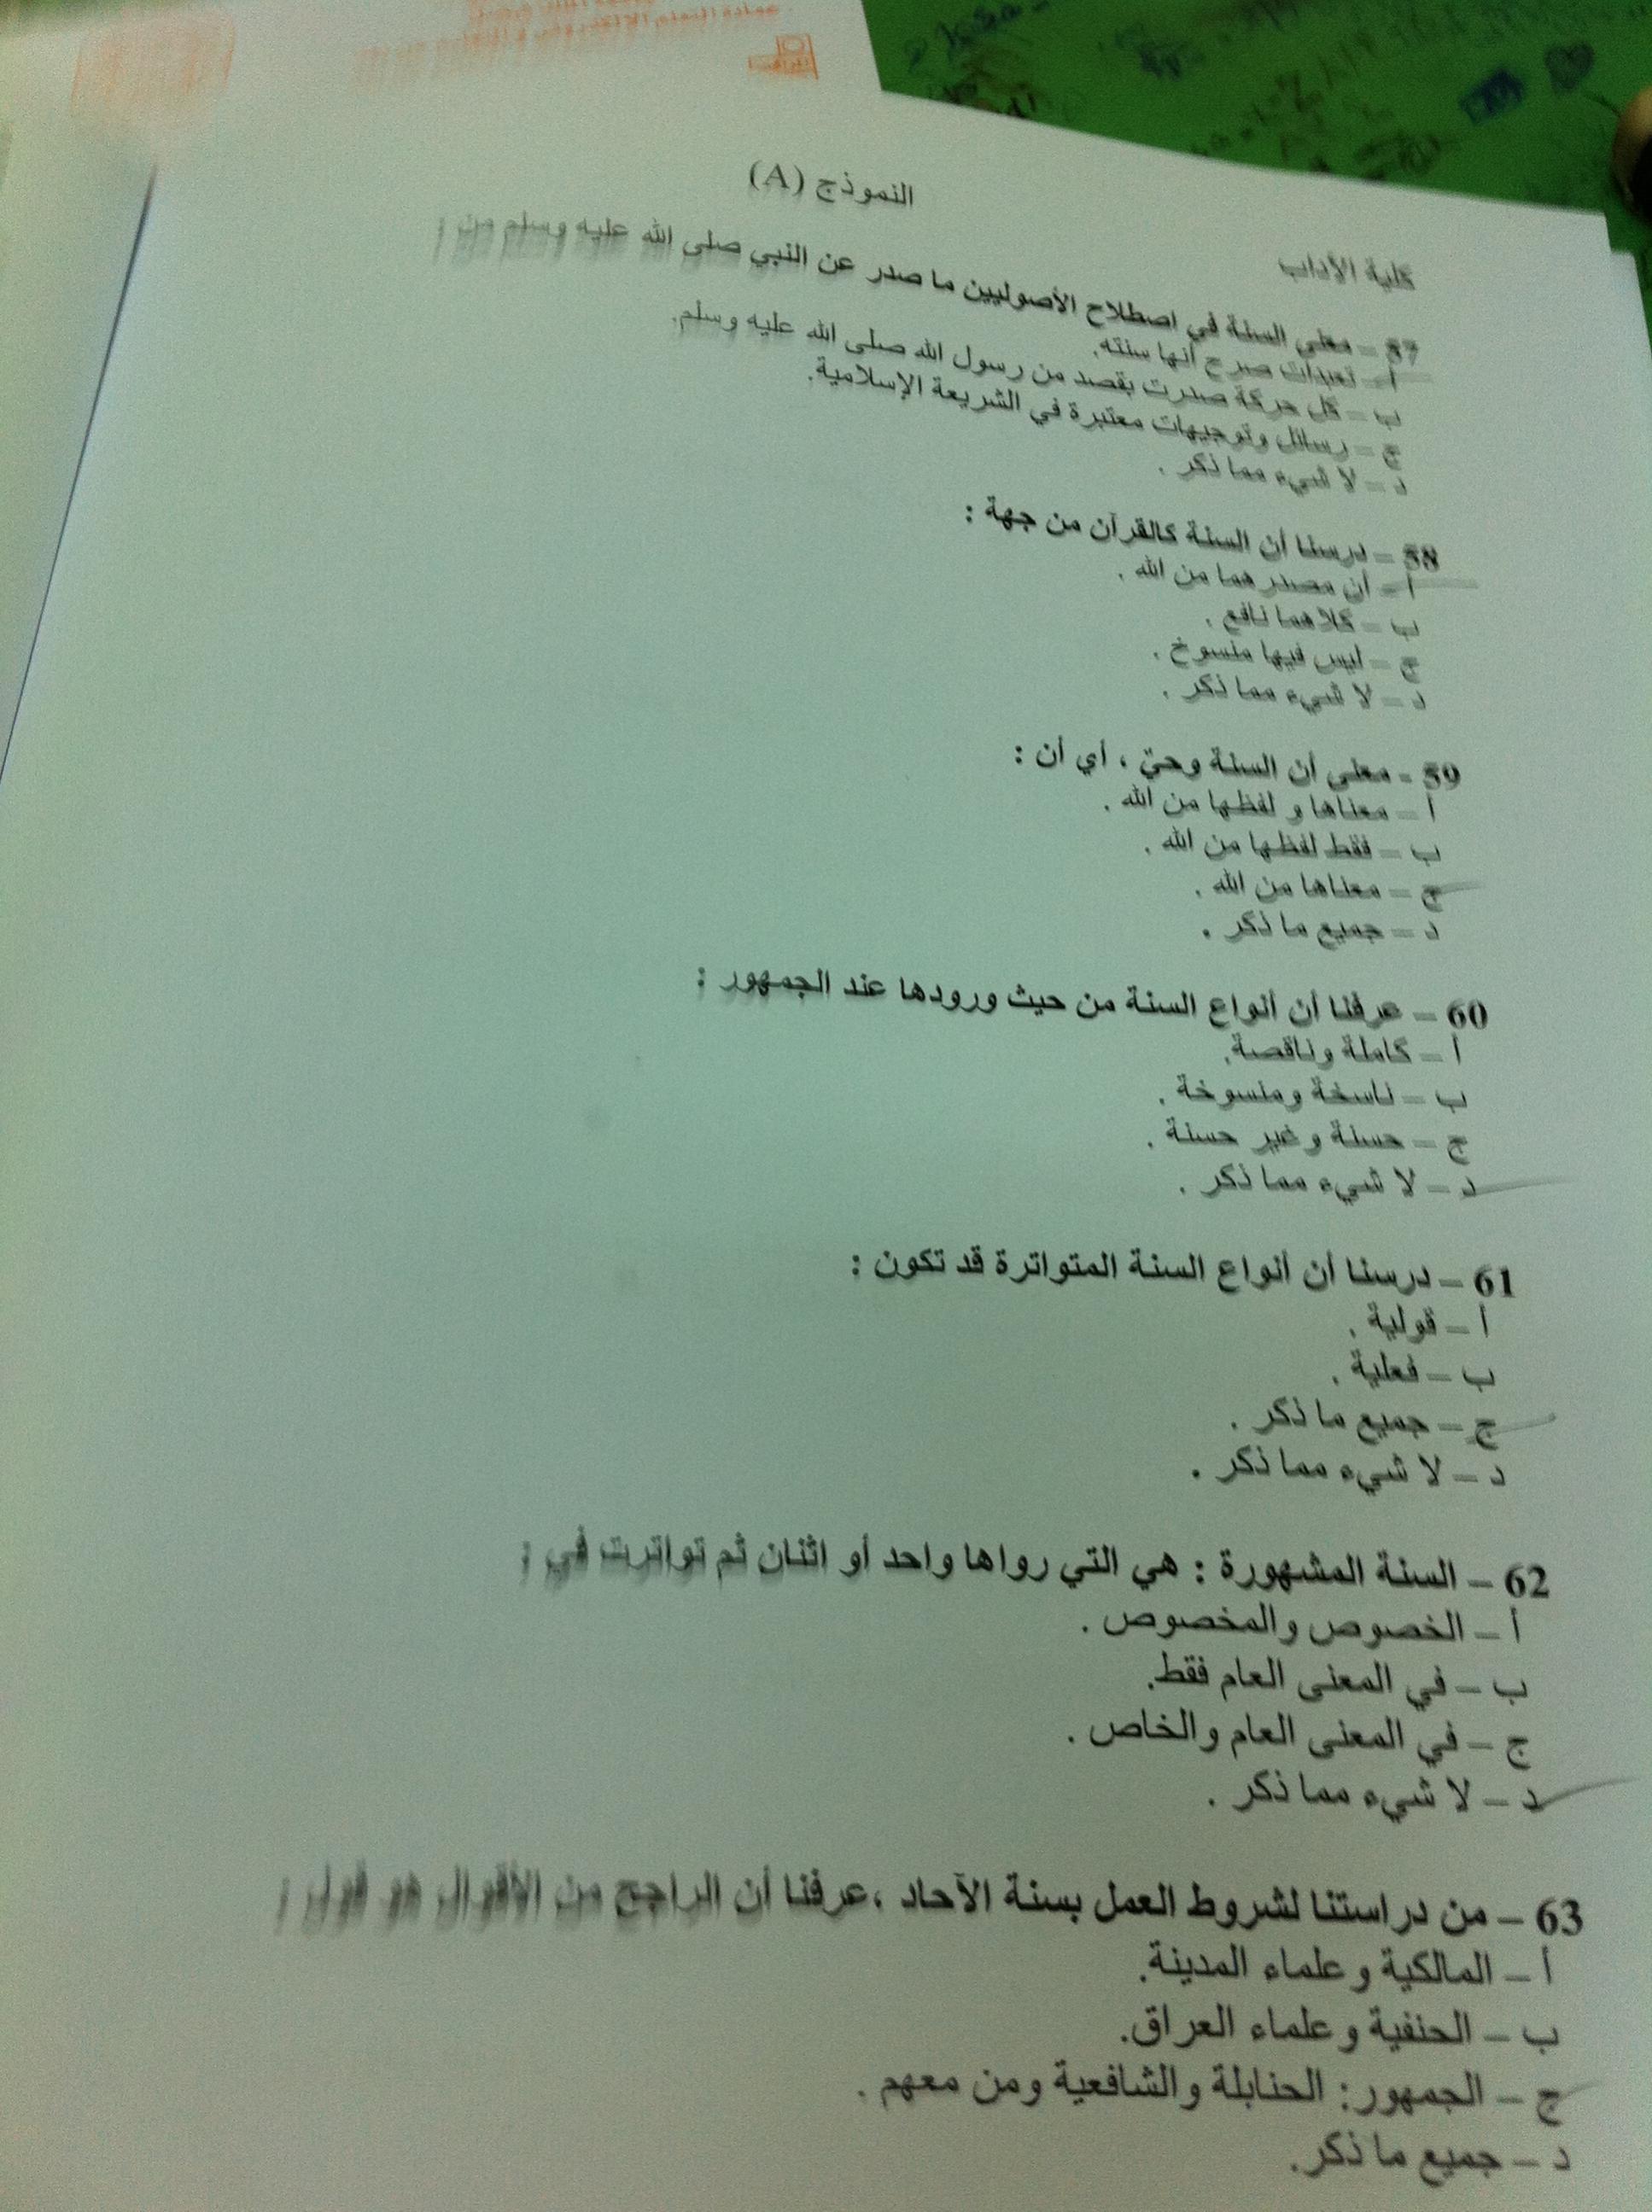 النموذج (A)
كلية الآداب
57 – معنى السنة في اصطلاح الأصوليين ما صدر عن النبي صلى الله عليه وسلم من :
أ – تعبدات صرح أنها سنته.
ب – كل حركة صدرت بقصد من رسول الله صلى الله عليه وسلم.
ج – رسائل وتوجيهات معتبرة في الشريعة الإسلامية.
د – لا شيء مما ذكر .
58 – درسنا أن السنة كالقرآن من جهة :
أ – أن مصدرهما من الله .
ب – كلاهما نافع .
ج – ليس فيها منسوخ .
د – لا شيء مما ذكر .
59 - معنى أن السنة وحيّ ، أي أن :
أ – معناها و لفظها من الله .
ب – فقط لفظها من الله .
ج – معناها من الله .
د – جميع ما ذكر .
60 – عرفنا أن أنواع السنة من حيث ورودها عند الجمهور :
أ – كاملة وناقصة.
ب – ناسخة ومنسوخة .
ج – حسنة وغير حسنة .
د – لا شيء مما ذكر .
61 – درسنا أن أنواع السنة المتواترة قد تكون :
أ – قولية .
ب – فعلية .
ج – جميع ما ذكر .
د – لا شيء مما ذكر .
62 – السنة المشهورة : هي التي رواها واحد أو اثنان ثم تواترت في :
أ – الخصوص والمخصوص .
ب – في المعنى العام فقط.
ج – في المعنى العام والخاص .
د – لا شيء مما ذكر .
63 – من دراستنا لشروط العمل بسنة الآحاد ،عرفنا أن الراجح من الأقوال هو قول :
أ – المالكية وعلماء المدينة.
ب – الحنفية وعلماء العراق.
ج – الجمهور: الحنابلة والشافعية ومن معهم .
د – جميع ما ذكر.